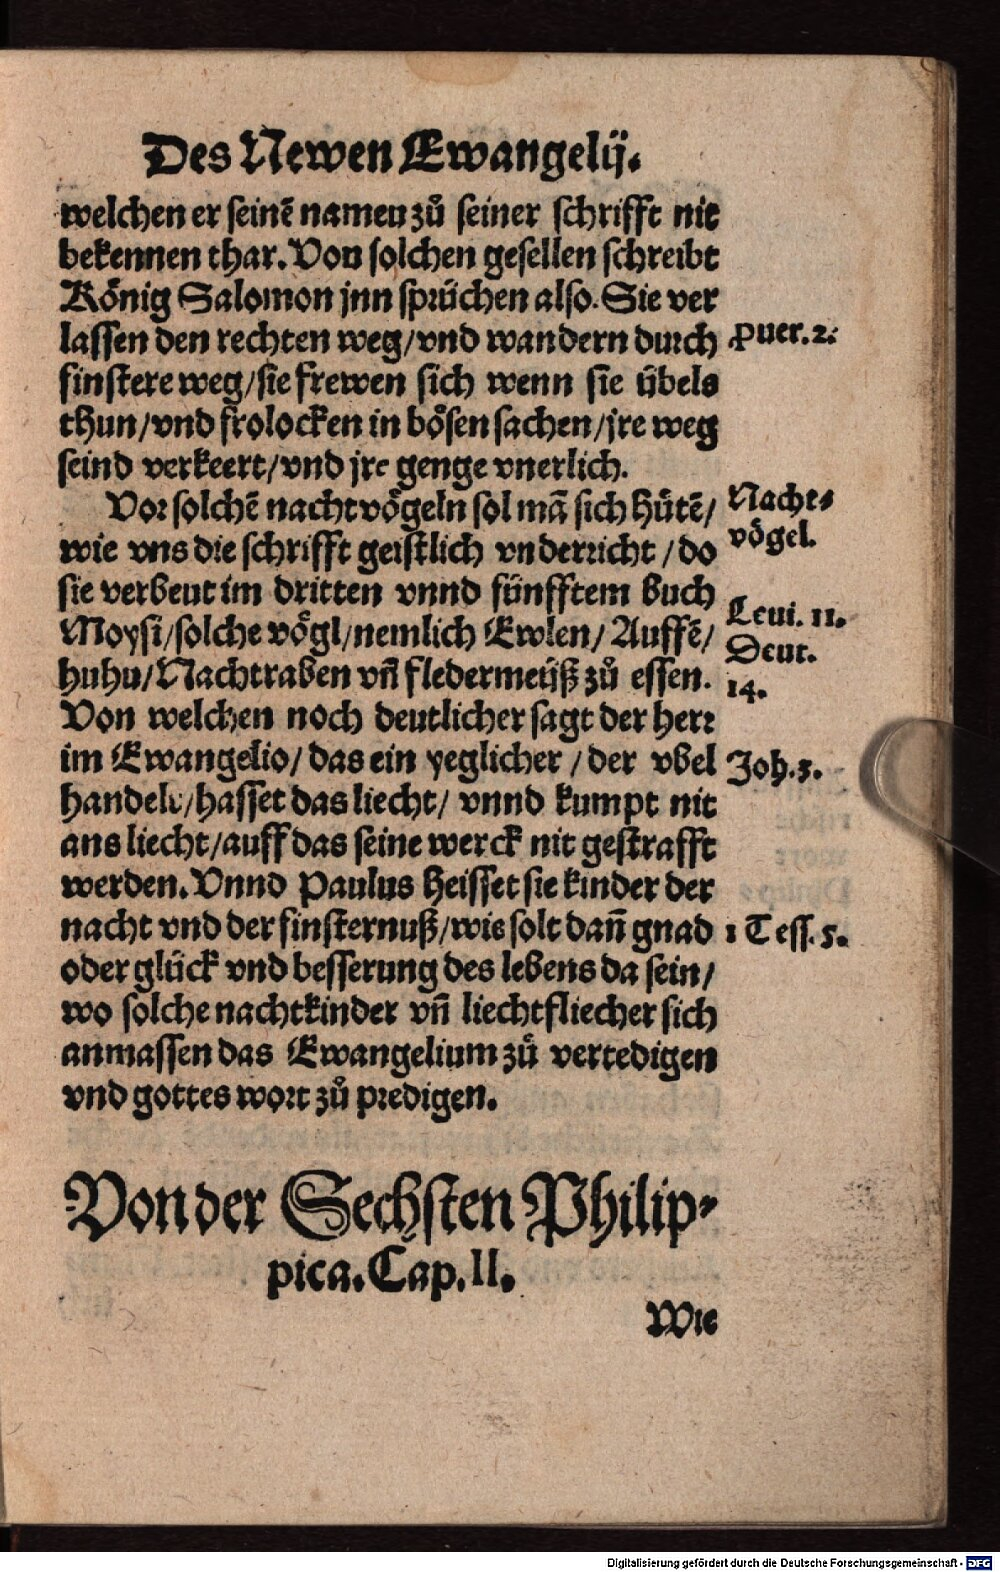 Des Newen Ewangelij.
welchen er seinē nameu zuͦ seiner schrifft nit
bekennen thar. Vou solchen gesellen schreibt
Koͤnig Salomon jnn spruͤchen also. Sie ver
lassen den rechten weg/ vnd wandern durch
finstere weg/ sie frewen sich wenn sie uͤbels
thun/ vnd frolocken in boͤsen sachen/ jre weg
seind verkeert/ vnd jre genge vnerlich.
Vor solchē nachtvoͤgeln sol mā sich huͤtē/
wie vns die schrifft geistlich vnderricht/ do
sie verbeut im dritten vnnd fuͤnfftem buch
Moysi/ solche voͤgl/ nemlich Ewlen/ Auffē/
huhu/ Nachtraben vn̄ fledermeuͤß zuͦ essen.
Von welchen noch deutlicher sagt der herr
im Ewangelio/ das ein yeglicher/ der vbel
handelt/ hasset das liecht/ vnnd kumpt nit
ans liecht/ auff das seine werck nit gestrafft
werden. Vnnd Paulus heisset sie kinder der
nacht vnd der finsternuß/ wie solt dañ gnad
oder gluͤck vnd besserung des lebens da sein/
wo solche nachtkinder vn̄ liechtfliecher sich
anmassen das Ewangelium zuͦ vertedigen
vnd gottes wort zuͦ predigen.
ꝓuer. 2.
Nacht⸗
voͤgel.
Leui. 11.
Deut.
14.
Joh. 3.
1 Tess. 5.
Von der Sechsten Philip⸗
pica. Cap. II.
Wie
Digitalisierung gefördert durch die Deutsche Forschungsgemeinschaft - DFG